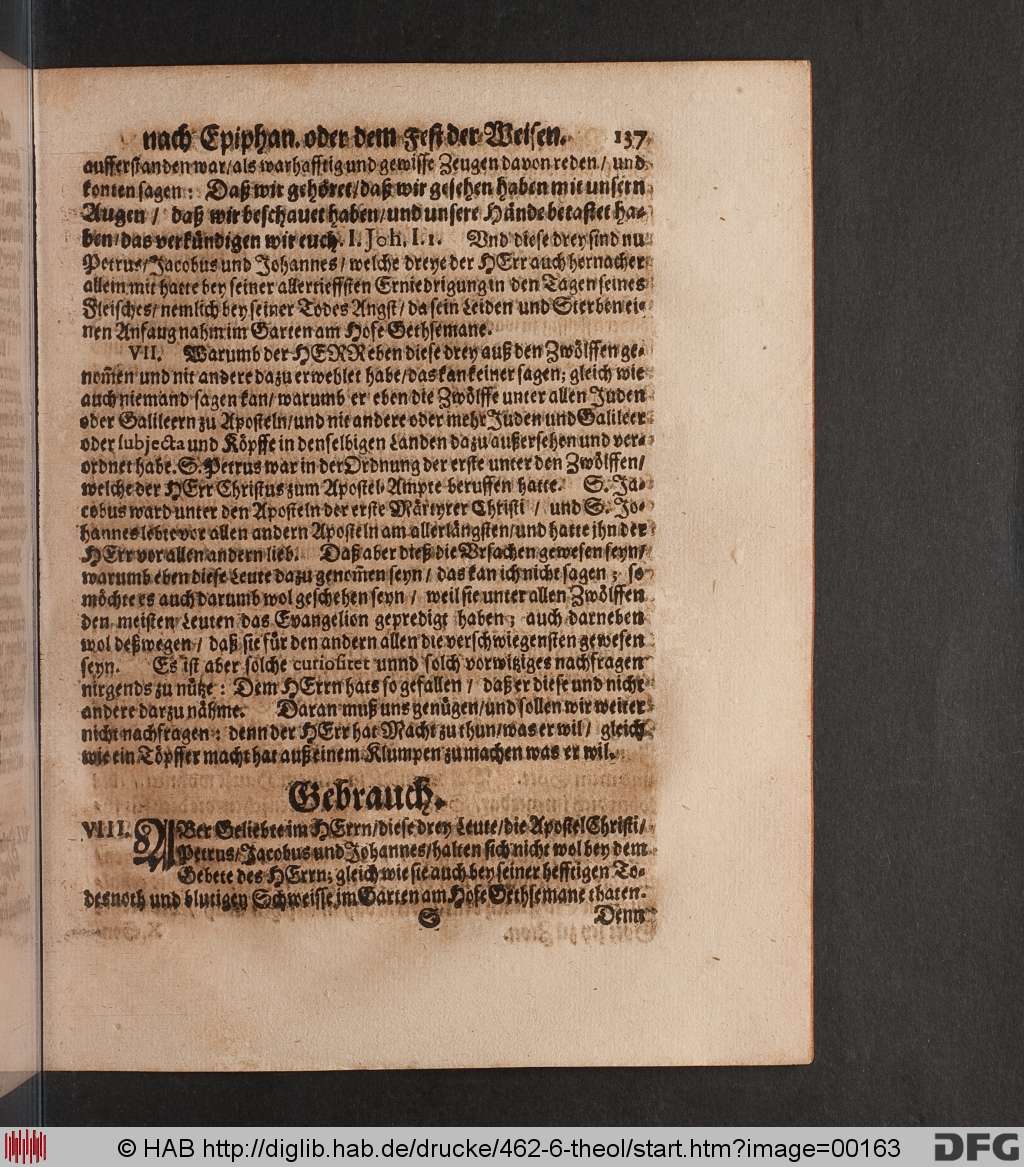 nach Epiphan. oder dem Fest der Weisen. 137
aufferstanden war/als warhafftig und gewisse Zeugen davon reden/ und
konten sagen: Daß wir gehöret/daß wir gesehen haben mit unsern
Augen/ daß wir beschauet haben/und unsere Hände betastet ha-
ben/das verkündigen wir euch. I. Joh. I. 1. Vnd diese drey sind nu
Petrus/Jacobus und Johannes/welche dreye der HErr auch hernacher
allein mit hatte bey seiner allertieffsten Erniedrigung in den Tagen seines
Fleisches/nemlich bey seiner Todes Angst/da sein Leiden und Sterben ei-
nen Anfang nahm im Garten am Hofe Gethsemane.
VII. Warumb der HERR eben diese drey auß den Zwölffen ge-
nom̃en und nit andere dazu erwehlet habe/das kan keiner sagen; gleich wie
auch niemand sagen kan/warumb er eben die Zwölffe unter allen Juden
oder Galileern zu Aposteln/und nit andere oder mehr Juden und Galileer
oder subjecta und Köpffe in denselbigen Landen dazu außersehen und ver-
ordnet habe. S. Petrus war in der Ordnung der erste unter den Zwölffen/
welche der HErr Christus zum Apostel-Ampte beruffen hatte. S. Ja-
cobus ward unter den Aposteln der erste Märtyrer Christi/ und S. Jo-
hannes lebte vor allen andern Aposteln am allerlängsten/und hatte ihn der
HErr vor allen andern lieb. Daß aber dieß die Vrsachen gewesen seyn/
warumb eben diese Leute dazu genom̃en seyn/ das kan ich nicht sagen; so
möchte es auch darumb wol geschehen seyn/ weil sie unter allen Zwölffen
den meisten Leuten das Evangelion gepredigt haben; auch darneben
wol deßwegen/ daß sie für den andern allen die verschwiegensten gewesen
seyn. Es ist aber solche curiositet unnd solch vorwitziges nachfragen
nirgends zu nütze: Dem HErrn hats so gefallen/ daß er diese und nicht
andere darzu nähme. Daran muß uns genügen/und sollen wir weiter
nicht nachfragen: denn der HErr hat Macht zu thun/was er wil/ gleich
wie ein Töpffer macht hat auß einem Klumpen zu machen was er wil.
Gebrauch.
VIII. ABer Geliebte im HErrn/diese drey Leute/die Apostel Christi/
Petrus/Jacobus und Johannes/halten sich nicht wol bey dem
Gebete des HErrn; gleich wie sie auch bey seiner hefftigen To-
desnoth und blutigen Schweisse im Garten am Hofe Gethsemane thaten.
S Denn
© HAB http://diglib.hab.de/drucke/462-6-theol/start.htm?image=00163
DFG